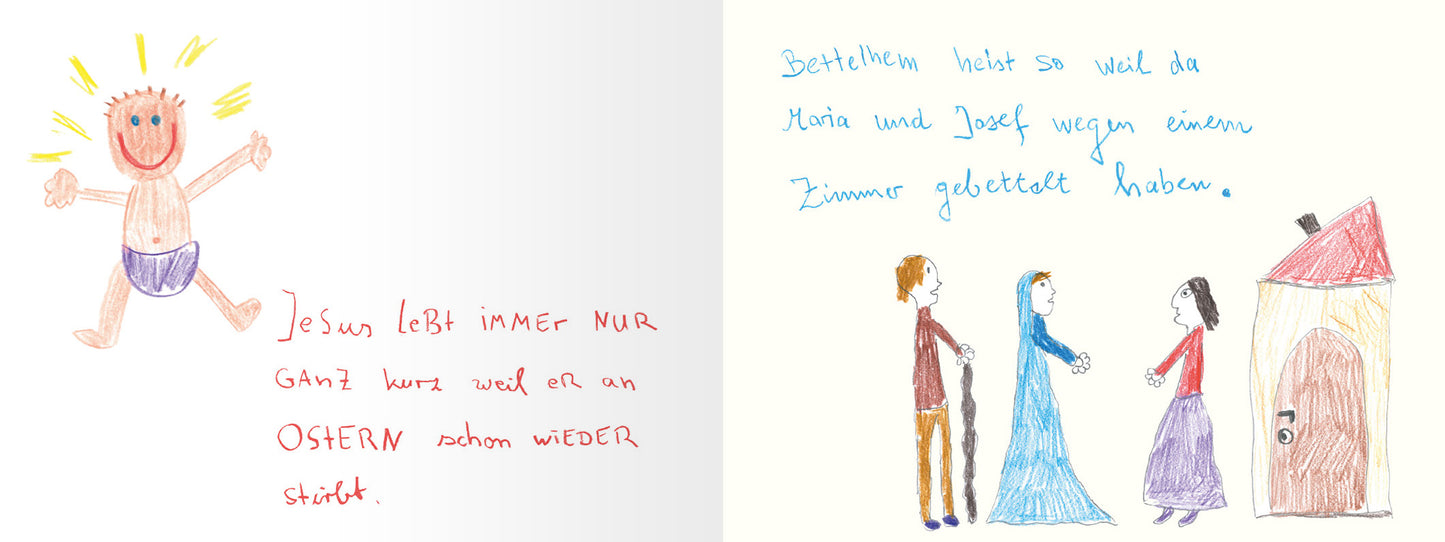 JeSus leBt iMMEr NUR
GAnZ kurz weil eR an
OStERN schon wiEDER
stirbt.
Bettelhem heist so weil da
Maria und Josef wegen einem
Zimmer gebettelt haben.